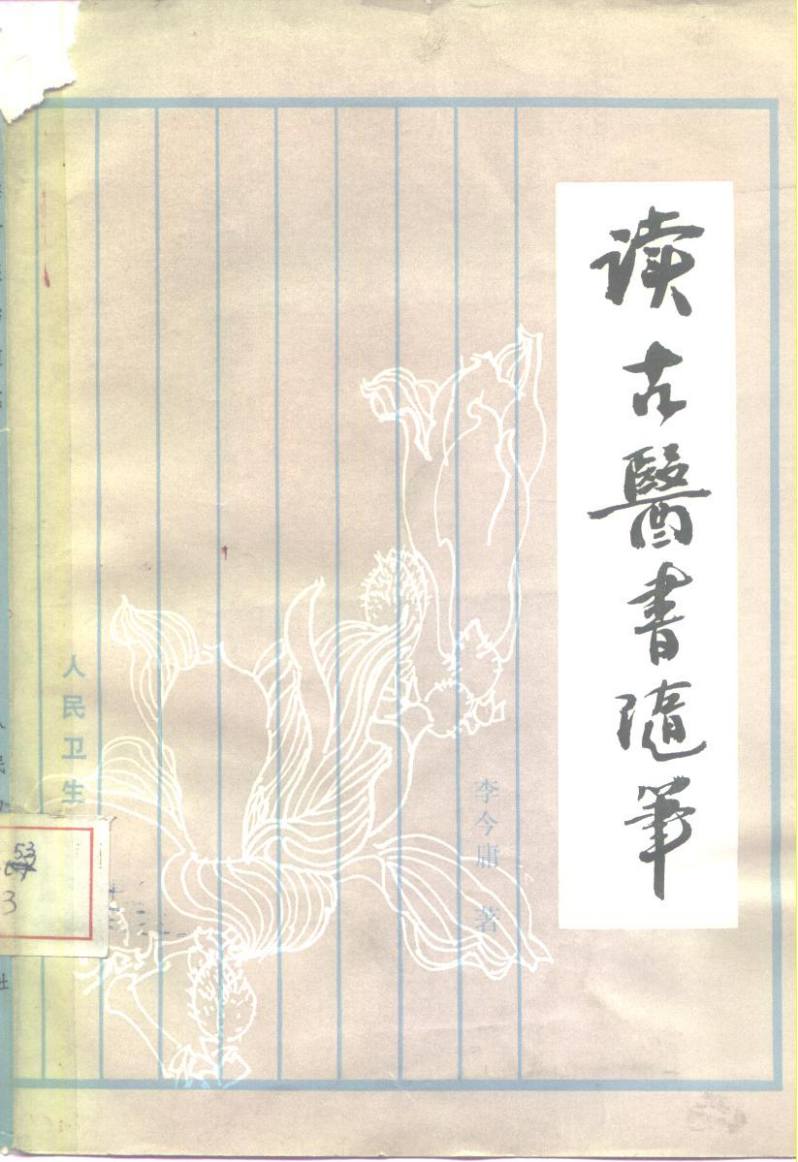 读古醫書隨筆
李今庸 著
人民卫生
53
3